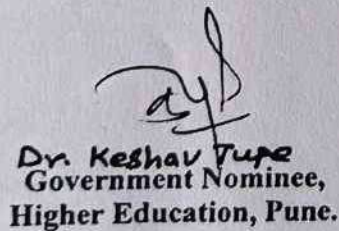 Dr. Keshav Tupe
Government Nominee,
Higher Education, Pune.